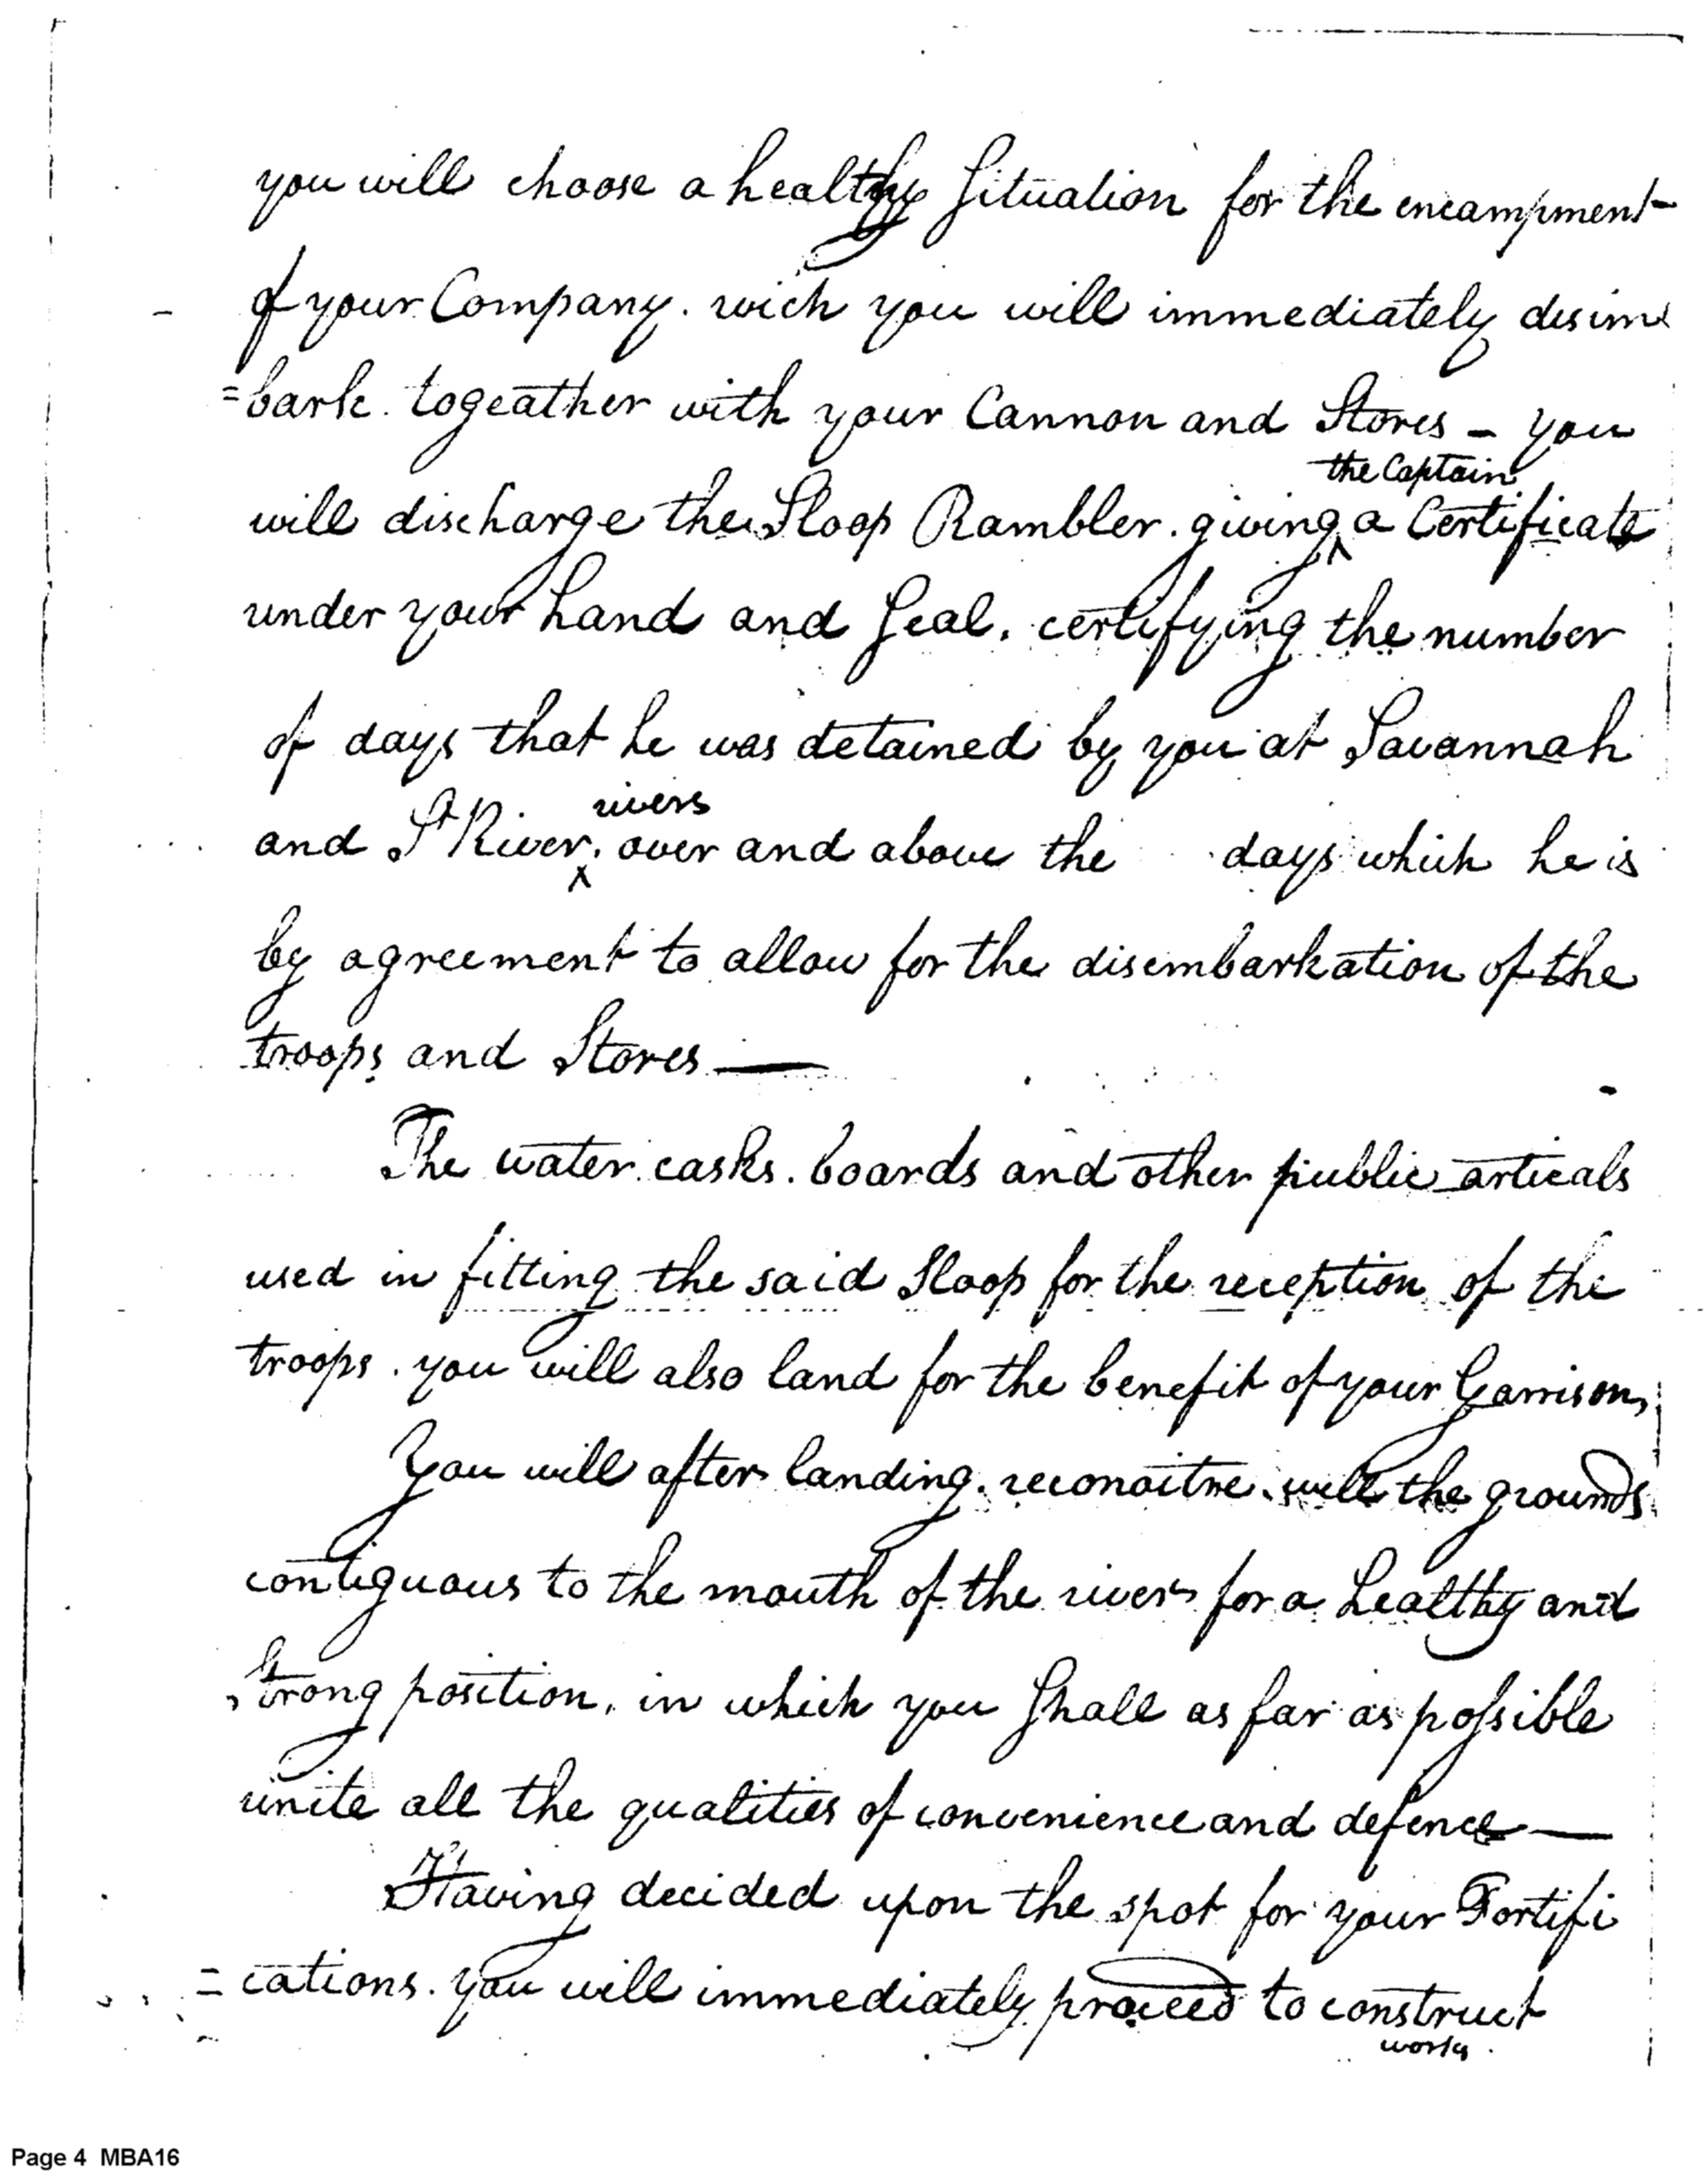 you will choose a healthy Situation for the encampment
of your Company. wich you will immediately disim
=bark. togeather with your Cannon and Stores – you
the Captain
will discharge the Sloop Rambler. giving ‸ a Certificate
under your hand and Seal. certifying the number
of days that he was detained by you at Savannah
rivers
and St River ‸. over and above the days which he is
by agreement to allow for the disembarkation of the
troops and Stores —
The water casks. boards and other public articals
used in fitting the said Sloop for the reception of the
troops. you will also land for the benefit of your Garrison,
You will after landing. reconoitre. well the grounds
contiguous to the mouth of the rivers for a healthy and
strong position, in which you shall as far as possible
unite all the qualities of convenience and defence —
Having decided upon the spot for your Fortifi
=cations. you will immediately proceed to construct
works.
Page 4 MBA16